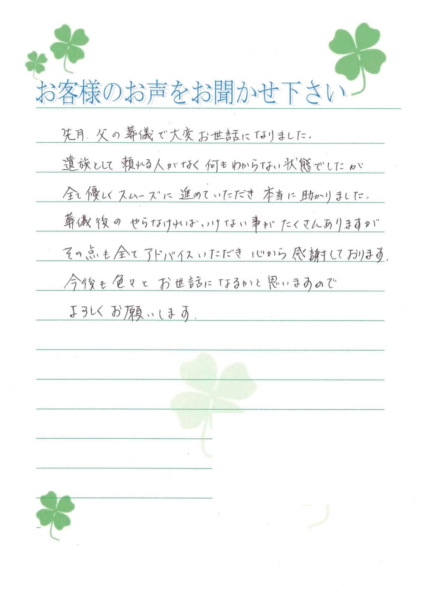 お客様のお声をお聞かせ下さい
先月 父の葬儀で大変お世話になりました。
遺族として 頼れる人がなく 何もわからない状態でしたが
全て優しくスムーズに 進めていただき 本当に助かりました。
葬儀後の やらなければいけない事が たくさんありますが
その点も全てアドバイスいただき 心から 感謝しております。
今後も 色々と お世話になるかと思いますので
よろしくお願いします。